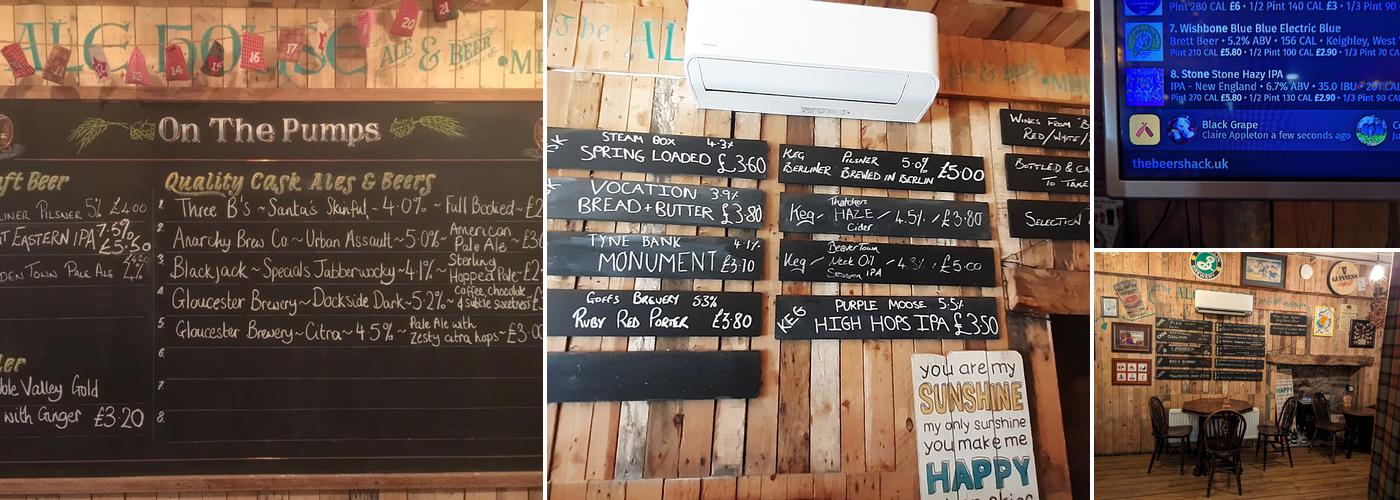 ALE HOUSE
ALE & BEER
13
14
15
16
17
20
21
On The Pumps
ft Beer
LINER PILSNER 5% £4.00
T EASTERN IPA 7.5% £5.50
DEN TOWN PALE ALE
Quality Cask Ales & Beers
1. Three B's ~ Santa's Skinful ~ 4.0% ~ Full Bodied ~ £2
2. Anarchy Brew Co ~ Urban Assault ~ 5.0% ~ American Pale Ale ~ £3
3. Blackjack ~ Specials Jabberwocky ~ 4.1% ~ Sterling Hopped Pale ~ £2
4. Gloucester Brewery ~ Dockside Dark ~ 5.2% ~ Coffee, chocolate & subtle sweetness £3
5. Gloucester Brewery ~ Citra ~ 4.5% ~ Pale Ale with Zesty citra hops ~ £3.00
6.
7.
8.
ble Valley Gold
with Ginger £3.20
The ALE
STEAM BOX 4.3%
SPRING LOADED £3.60
VOCATION 3.9%
BREAD + BUTTER £3.80
TYNE BANK 4.1%
MONUMENT £3.10
GOFFS BREWERY 5.3%
RUBY RED PORTER £3.80
KEG PILSNER 5.0% £5.00
BERLINER BREWED IN BERLIN
Thatchers
Keg HAZE 4.5% £3.80
Cider
BeaverTown
Keg Neck Oil 4.3% £5.00
Session IPA
KEG PURPLE MOOSE 5.5%
HIGH HOPS IPA £3.50
WINES FROM
RED/WHITE/
BOTTLED & CA
TO TAKE
SELECTION
you are my
SUNSHINE
my only sunshine
you make me
HAPPY
Pint 280 CAL £6 • 1/2 Pint 140 CAL £3 • 1/3 Pint 90
7. Wishbone Blue Blue Electric Blue
Brett Beer • 5.2% ABV • 156 CAL • Keighley, West
Pint 210 CAL £5.80 • 1/2 Pint 100 CAL £2.90 • 1/3 Pint 70 CAL
8. Stone Stone Hazy IPA
IPA - New England • 6.7% ABV • 35.0 IBU • 201 CAL
Pint 270 CAL £5.80 • 1/2 Pint 130 CAL £2.90 • 1/3 Pint 90
Black Grape
Claire Appleton a few seconds ago
thebeershack.uk
GUINNESS
HAPPY